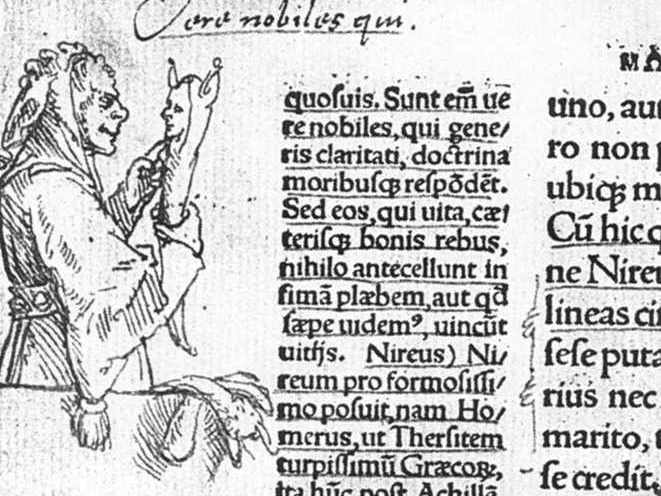 Vere nobiles qui.
quosuis. Sunt em̄ ue
re nobiles, qui gene/
ris claritati, doctrina
moribusꝗ respōdēt.
Sed eos, qui uita, cæt
terisꝗ bonis rebus,
nihilo antecellunt in
fimā plæbem, aut qđ
sæpe uidemꝰ, uincūt
uitijs. Nireus) Ni/
reum pro formosissi/
mo posuit, nam Ho/
merus, ut Thersitem
turpissimū Græcoꝝ,
ita hūc post Achillā
MA
uno, au
ro non p
ubiꝗ m
Cū hic q
ne Nireu
lineas cir
sese puta
rius nec
marito, t
se credit,